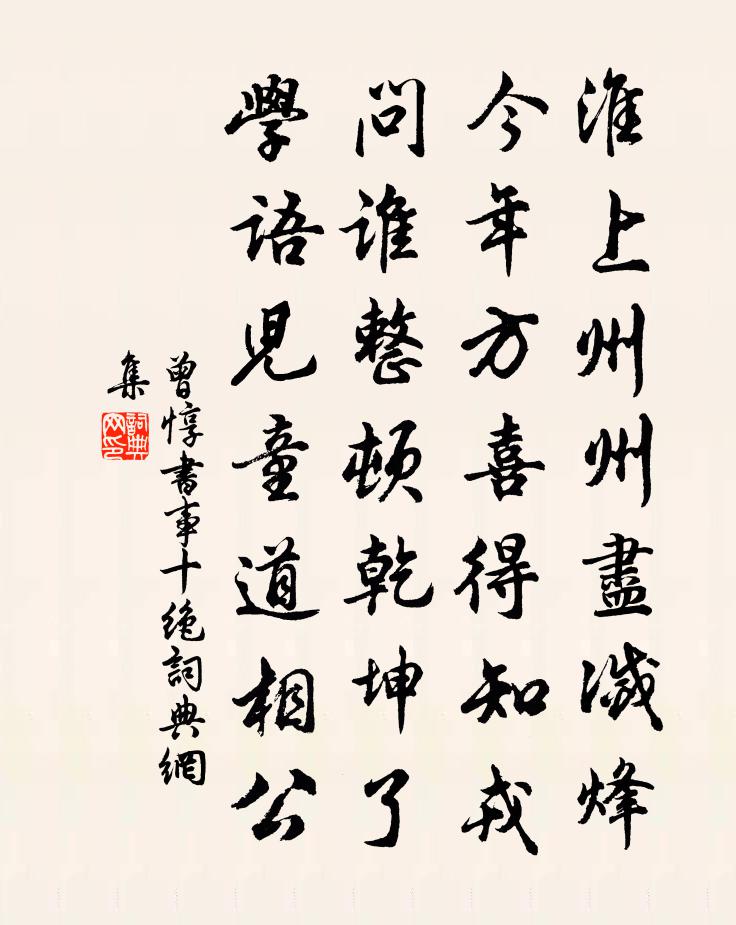 淮上州州盡滅烽
今年方喜得知戎
問誰整頓乾坤了
學語兒童道相公
曾惇書事十絶詞典網
集
詞典網印